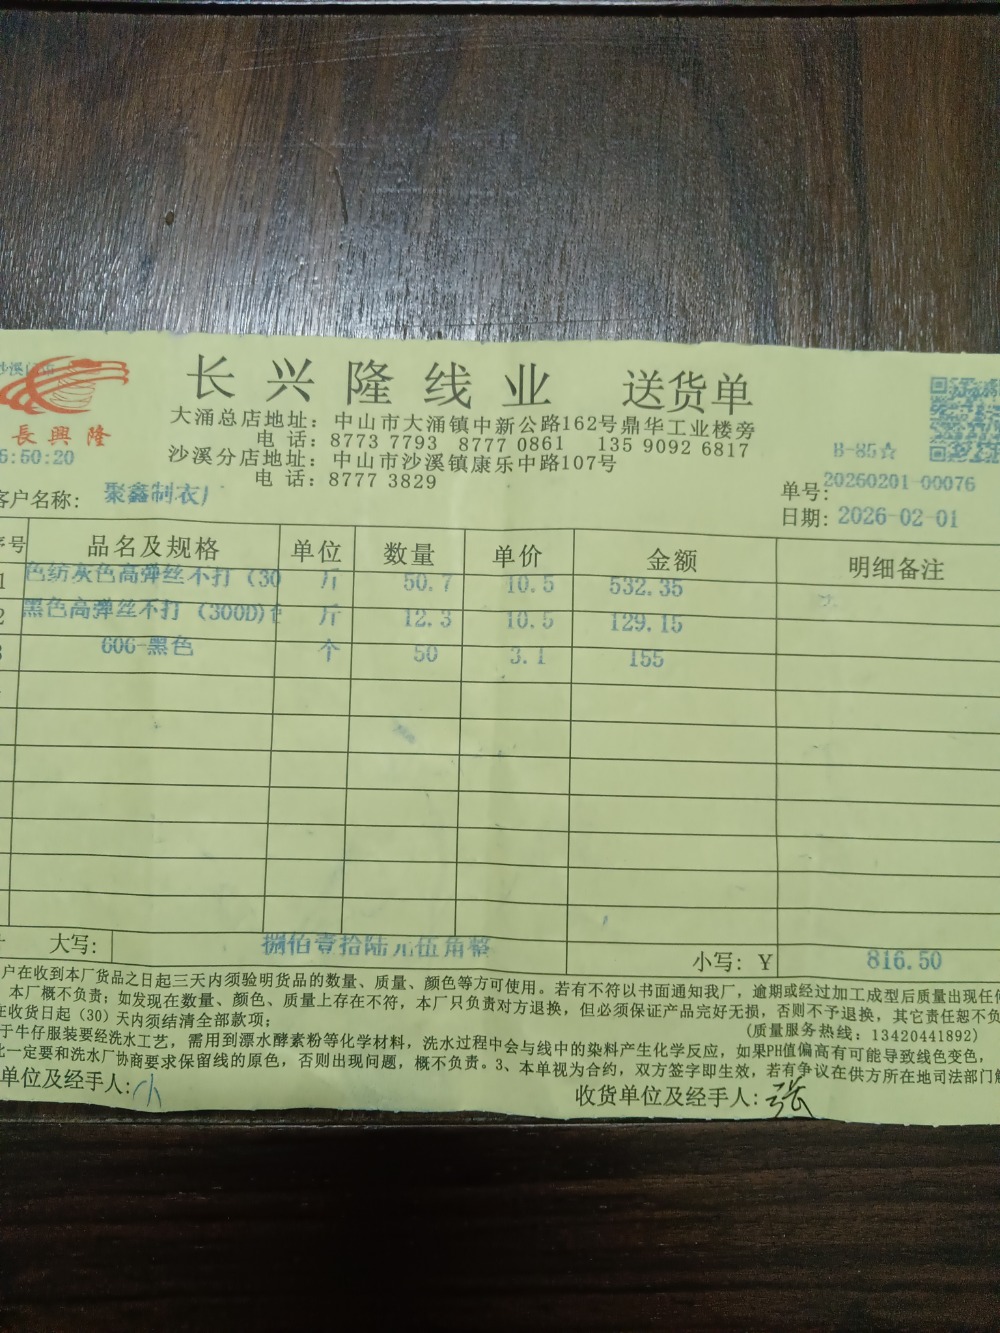 长兴隆线业 送货单
長興隆
大涌总店地址：中山市大涌镇中新公路162号鼎华工业楼旁
电 话：8773 7793 8777 0861 135 9092 6817
沙溪分店地址：中山市沙溪镇康乐中路107号
电 话：8777 3829
5:50:20
B-85☆
客户名称： 聚鑫制衣厂
单号：20260201-00076
日期：2026-02-01
序号 品名及规格 单位 数量 单价 金额 明细备注
1 色纺灰色高弹丝不打（30 斤 50.7 10.5 532.35
2 黑色高弹丝不打（300D) 斤 12.3 10.5 129.15
3 606-黑色 个 50 3.1 155
大写： 捌佰壹拾陆元伍角整 小写：Y 816.50
户在收到本厂货品之日起三天内须验明货品的数量、质量、颜色等方可使用。若有不符以书面通知我厂，逾期或经过加工成型后质量出现任何
本厂概不负责；如发现在数量、颜色、质量上存在不符，本厂只负责对方退换，但必须保证产品完好无损，否则不予退换，其它责任恕不负
在收货日起（30）天内须结清全部款项； (质量服务热线：13420441892)
于牛仔服装要经洗水工艺，需用到漂水酵素粉等化学材料，洗水过程中会与线中的染料产生化学反应，如果PH值偏高有可能导致线色变色，
比一定要和洗水厂协商要求保留线的原色，否则出现问题，概不负责。3、本单视为合约，双方签字即生效，若有争议在供方所在地司法部门解
单位及经手人：小 收货单位及经手人：张